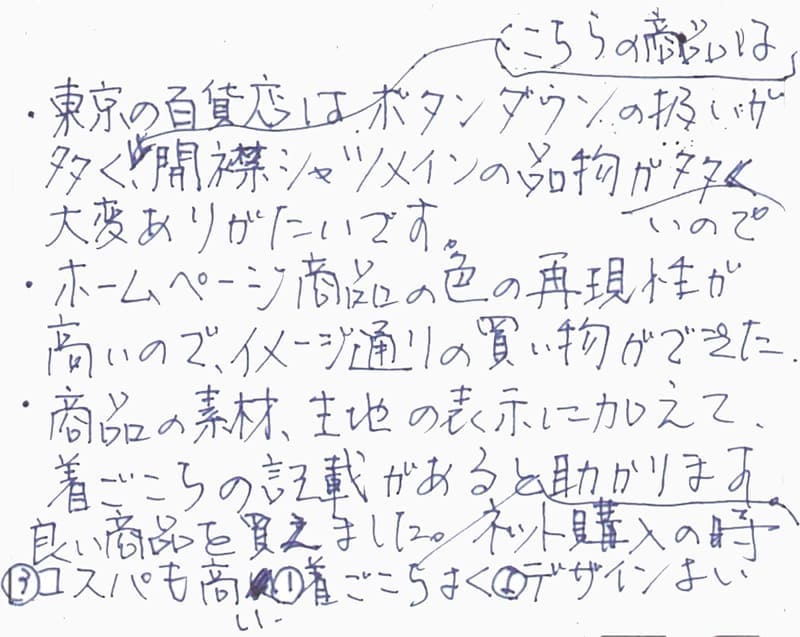 こちらの商品は
・東京の百貨店はボタンダウンの扱いが
多く、開襟シャツメインの品物が多く
いので
大変ありがたいです。
・ホームページ商品の色の再現性が
高いので、イメージ通りの買い物ができた.
・商品の素材、生地の表示に加えて、
着ごこちの記載があると助かります。
良い商品を買えました。ネット購入の時
③コスパも高 ①着ごこちよく②デザインよい
い